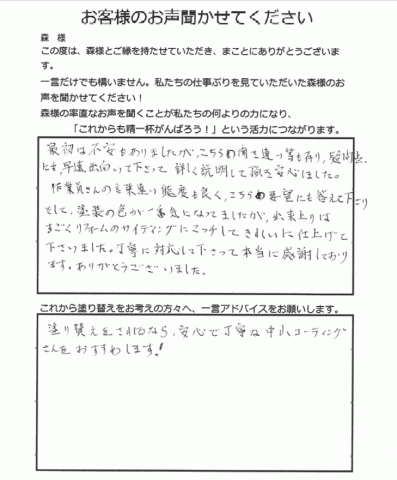 お客様のお声聞かせてください
森 様
この度は、森様とご縁を持たせていただき、まことにありがとうございま
す。
一言だけでも構いません。私たちの仕事ぶりを見ていただいた森様のお
声を聞かせてください！
森様の率直なお声を聞くことが私たちの何よりの力になり、
「これからも精一杯がんばろう！」という活力につながります。
最初は不安もありましたが、こちらの聞き違い等も有り、疑問点
にも、早速出向いて下さって 詳しく説明して頂き安心しました。
作業員さんの言葉遣い態度も良く、こちらの要望にも答えて下さり
そして、塗装の色が一番気になってましたが、出来上りは
すごくリフォームのサイディングにマッチしてきれいに仕上げて
下さいました。丁寧に対応して下さって本当に感謝しており
ます。ありがとうございました。
これから塗り替えをお考えの方々へ、一言アドバイスをお願いします。
塗り替えをされるなら、安心で丁寧な中小コーティング
さんをおすすめします!